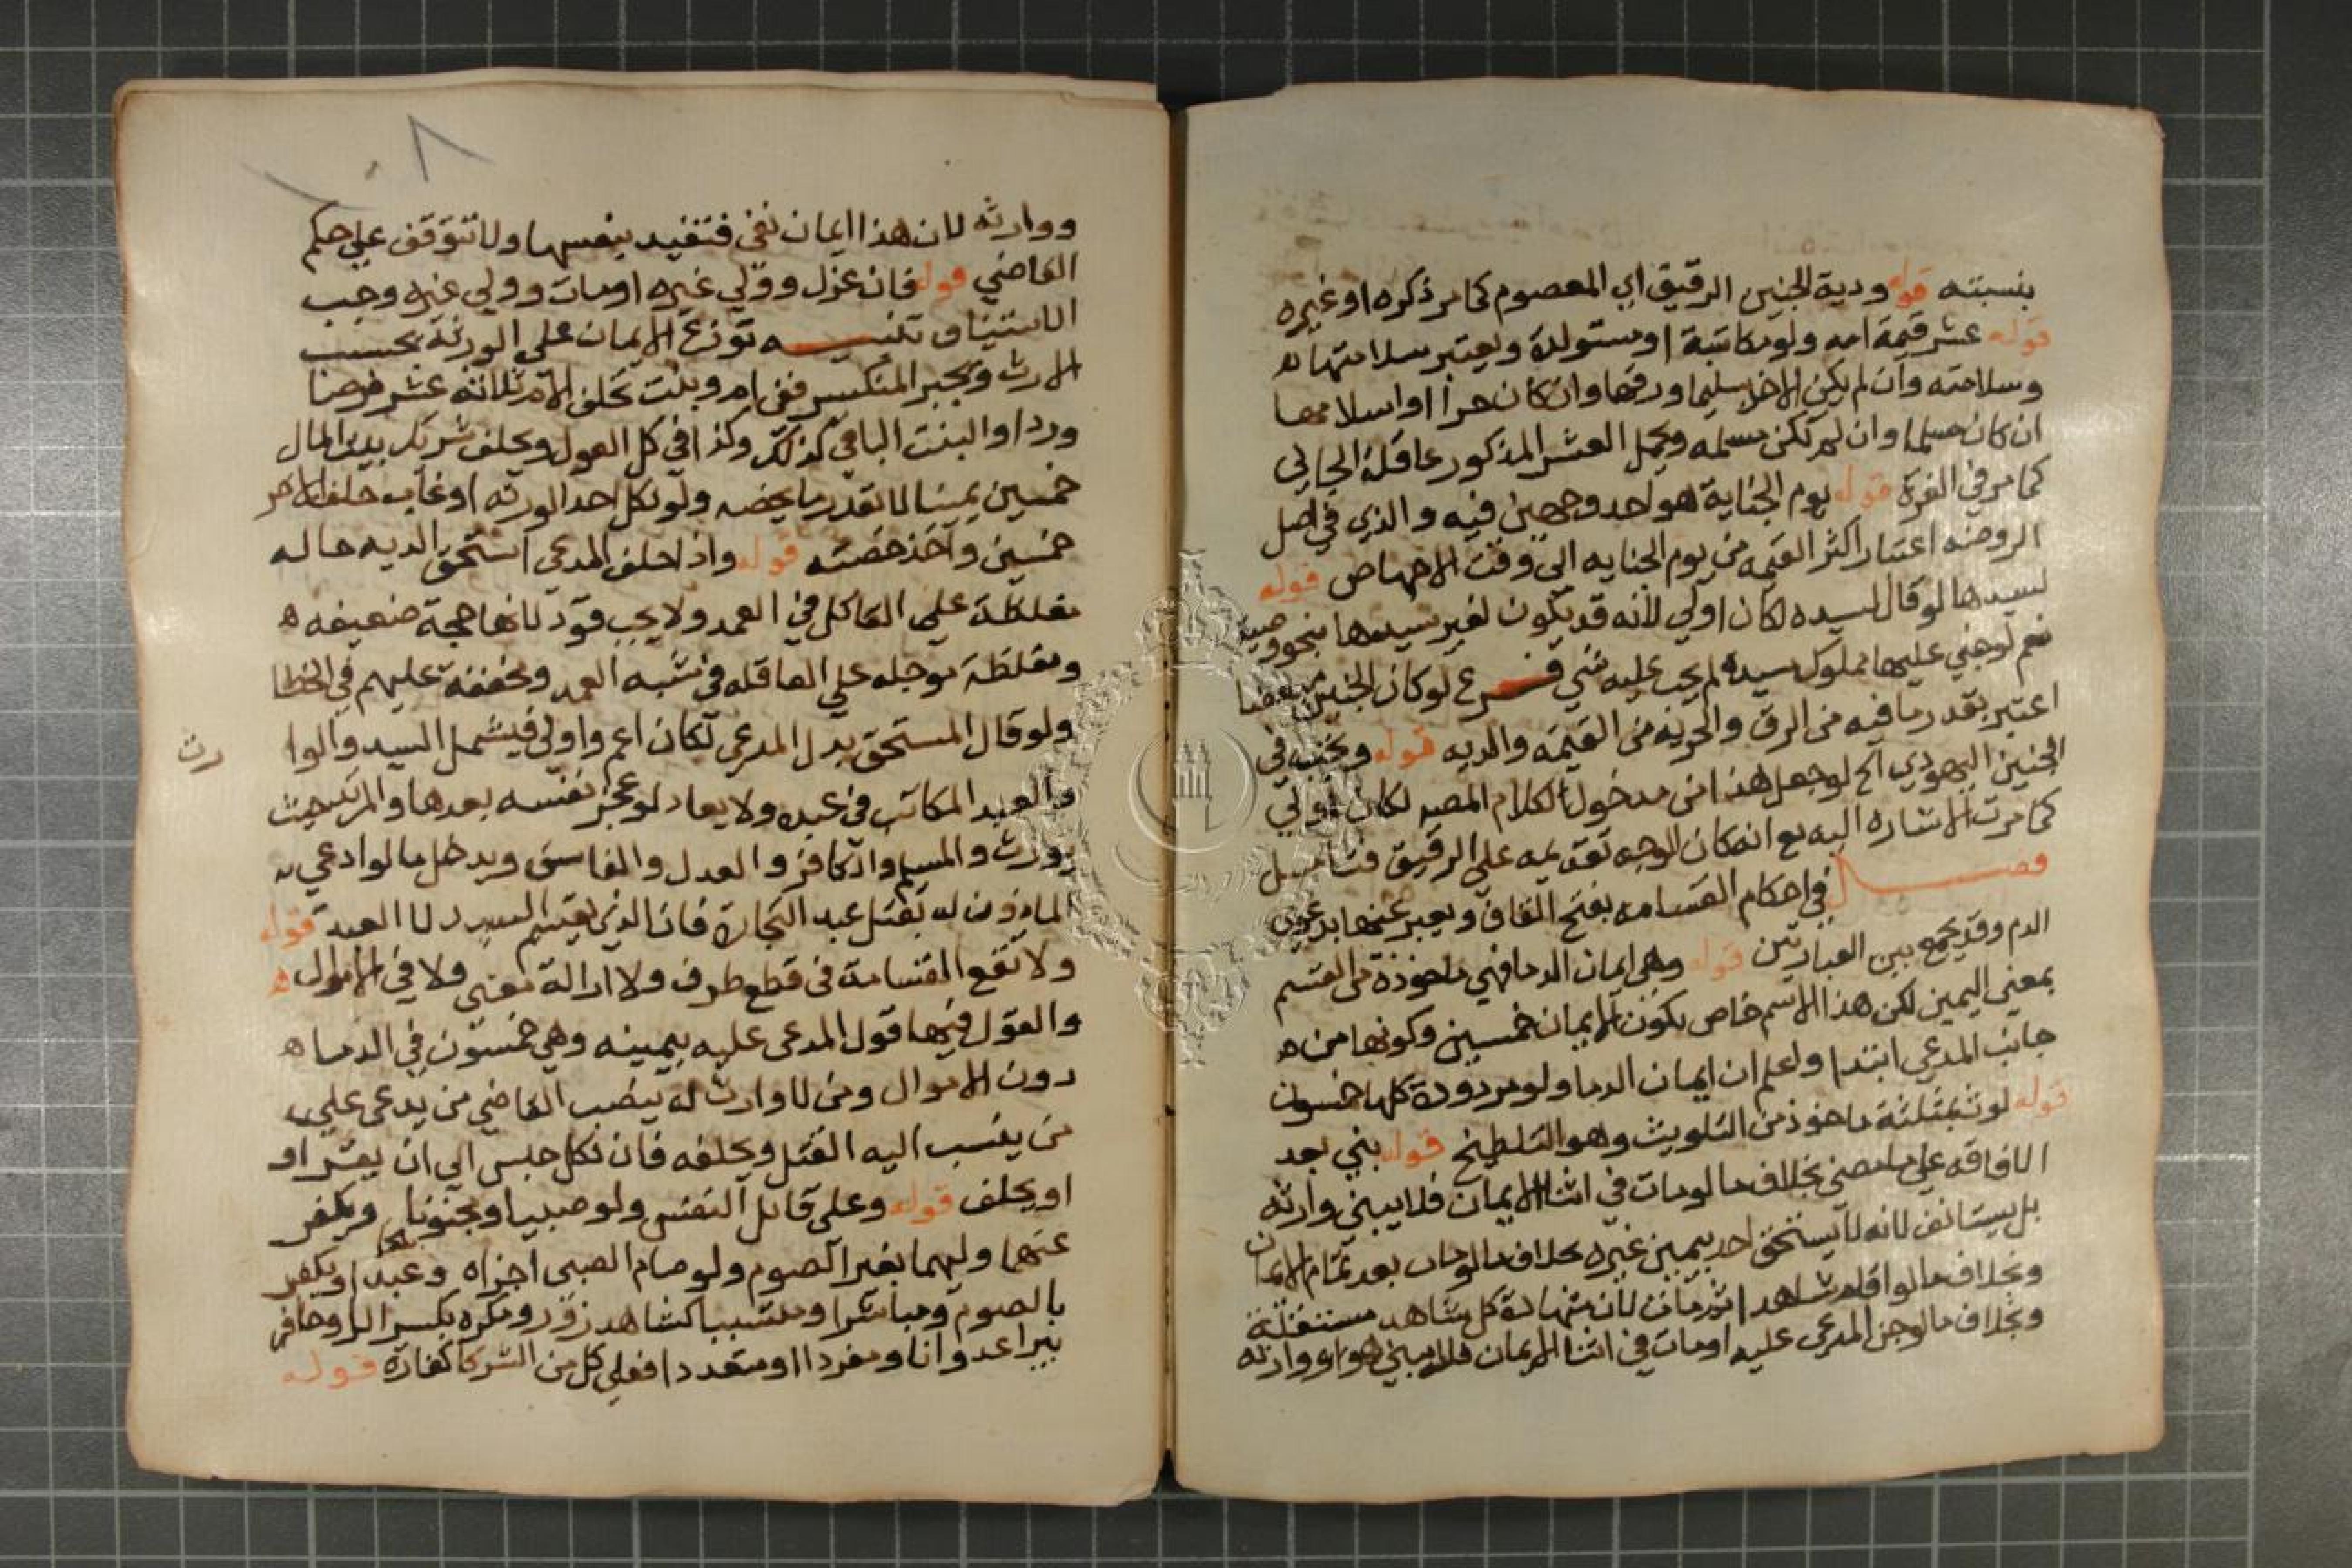 بنسبته قوله ودية الجنين الرقيق اي المعصوم كما مر ذكره او غيره
قوله عشر قيمة امه ولو مكاتبة او مستولدة ويعتبر سلامتها
وسلامته وان لم يكن الاخر سليما ورقها وان كان حرا او اسلامها
ان كان مسلما وان لم تكن مسلمه ويحمل العشر المذكور عاقلة الجاني
كما مر في الغرة قوله يوم الجناية هو احد وجهين فيه والذي في اصل
الروضه اعتبار اكثر القيمه من يوم الجنايه الي وقت الاجهاض قوله
لسيدها لو قال لسيده لكان اولي لانه قد يكون لغير سيدها بنحو وصية
نعم لو جني عليها مملوك سيده لم يجب عليه شي فرع لو كان الجنين مبعضا
اعتبر بقدر ما فيه من الرق والحريه من القيمه والديه قوله ويجب في
الجنين اليهودي الخ لو جعل هذا من مدخول الكلام المصه لكان اولي
كما مرت الاشاره اليه مع انه كان الوجه تقديمه علي الرقيق فتامل
فصل في احكام القسامه بفتح القاف ويعبر عنها بدعوي
الدم وقد يجمع بين العبارتين قوله وهي ايمان الدما فهي ماخوذة من القسم
بمعني اليمين لكن هذا الاسم خاص بكون الايمان خمسين وكونها من ه
جانب المدعي ابتدا واعلم ان ايمان الدما ولو مردودة كلها خمسون
قوله لوث بمثلثة ماخوذ من التلويث وهو التلطيخ قوله بني بعد
الافاقه علي ما مضي بخلاف ما لو مات في اثنا الايمان فلا يبني وارثه
بل يستانف لانه لا يستحق احد بيمين غيره بخلاف ما لو مات بعد تمام الايمان
وبخلاف ما لو اقام شاهدا ثم مات لان شهادة كل شاهد مستقلة
وبخلاف ما لو جن المدعي عليه او مات في اثنا الايمان فلا يبني هو او وارثه
ووارثه لان هذا ايمان نفي فتفيد بنفسها ولا تتوقف علي حكم
القاضي قوله فان عزل وولي غيره او مات وولي غيره وجب
الاستيناف تنبيه توزع الايمان علي الورثة بحسب
الارث ويجبر المنكسر ففي ام وبنت تحلف الام ثلاثة عشر فرضا
وردا والبنت الباقي كذلك وكذا في كل العول ويحلف شريك بيت المال
خمسين يمينا لا بقدر ما يخصه ولو نكل احد الورثه او غاب حلف الاخر
خمسين واخذ حصته قوله واذا حلف المدعي استحق الديه حاله
مغلظة علي القاتل في العمد ولا يجب قود لانها حجة ضعيفه ه
ومغلظة موجله علي العاقله في شبه العمد ومخففة عليهم في الخطا
ولو قال المستحق بدل المدعي لكان اعم واولي فيشمل السيد والوا
رث
والعبد المكاتب في عبده ولا يعاد لو عجز نفسه بعدها والمرتد حيث
يورث والمسلم والكافر والعدل والفاسق ويدخل ما لو ادعي
الماذون له بقتل عبد التجارة فان الذي يقسم السيد لا العبد قوله
ولا تقع القسامة في قطع طرف ولا ازالة معني ولا في الاموال ه
والقول فيها قول المدعي عليه بيمينه وهي خمسون في الدما ه
دون الاموال ومن لا وارث له ينصب القاضي من يدعي علي
من ينسب اليه القتل ويحلفه فان نكل حبس الي ان يقر او
او يحلف قوله وعلي قاتل النفس ولو صبيا او مجنونا ويكفر
عنهما وليهما بغير الصوم ولو صام الصبي اجزاه وعبدا ويكفر
بالصوم ومباشرا ومتسببا كشاهد زور ومكره بكسر الرا وحافر
بيرا عدوانا ومفردا او متعددا فعلي كل من الشركا كفارة قوله